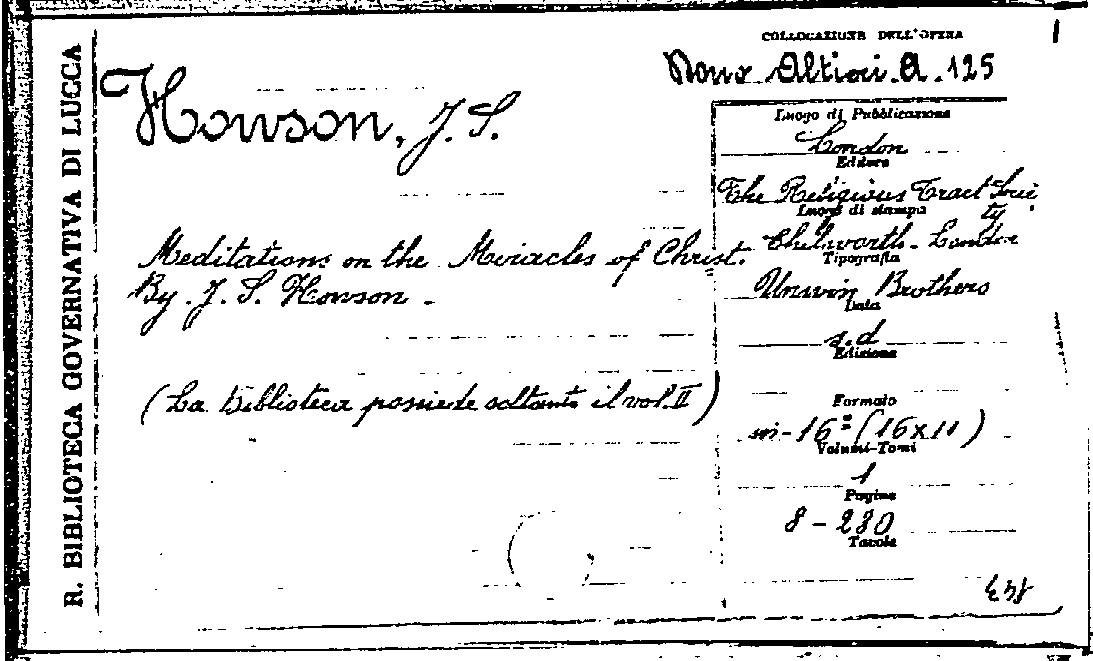 R. BIBLIOTECA GOVERNATIVA DI LUCCA
COLLOCAZIONE DELL'OPERA
Altiori. A. 125
Howson, J. S.
Meditations on the Miracles of Christ.
By J. S. Howson -
(La biblioteca possiede soltanto il vol. II)
Luogo di Pubblicazione
London
Editore
The Religious Tract Society
Luogo di stampa
Chilworth - London
Tipografia
Unwin Brothers
Data
s.d
Edizione
Formato
in-16º (16x11)
Volumi-Tomi
1
Pagine
8 - 280
Tavole